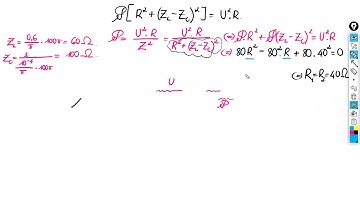 𝒫[R² + (Z_L - Z_C)²] = U²R.
Z_L = 0,6/π . 100π = 60Ω.
Z_C = 1/(10⁻⁴/π . 100π) = 100Ω.
𝒫 = U²R/Z² = U²R/(R² + (Z_L - Z_C)²) (⇒) 𝒫R² + 𝒫(Z_L - Z_C)² = U²R
(⇒) 80R² - 80²R + 80.40² = 0
(⇒) R₁ = R₂ = 40Ω
U
𝒫